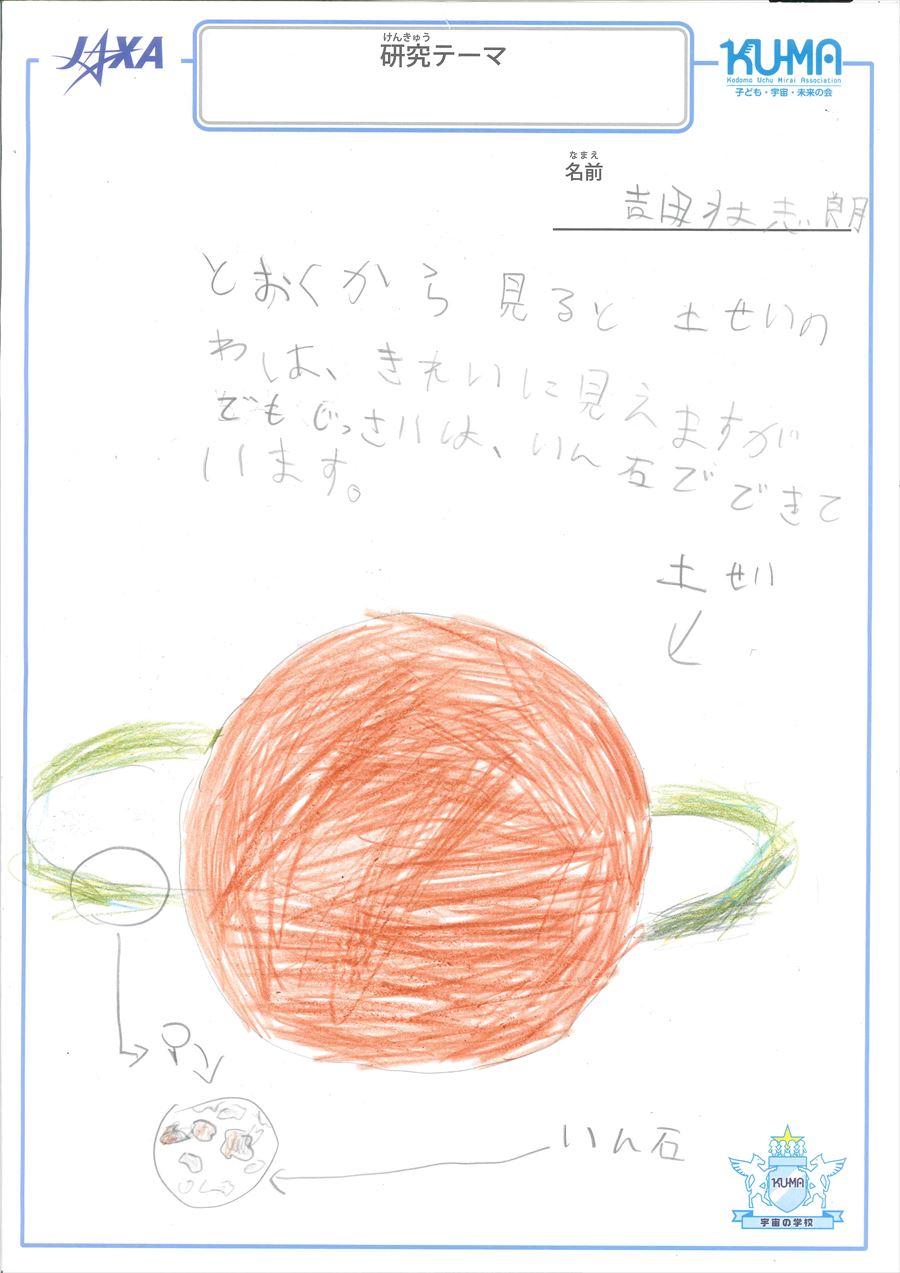 JAXA
けんきゅう
研究テーマ
KU-MA
Kodomo Uchu Mirai Association
子ども・宇宙・未来の会
なまえ
名前
吉田壮志朗
とおくから見ると土せいの
わは、きれいに見えますが
でもじっさいは、いん石でできて
います。
土せい
いん石
KU-MA
宇宙の学校